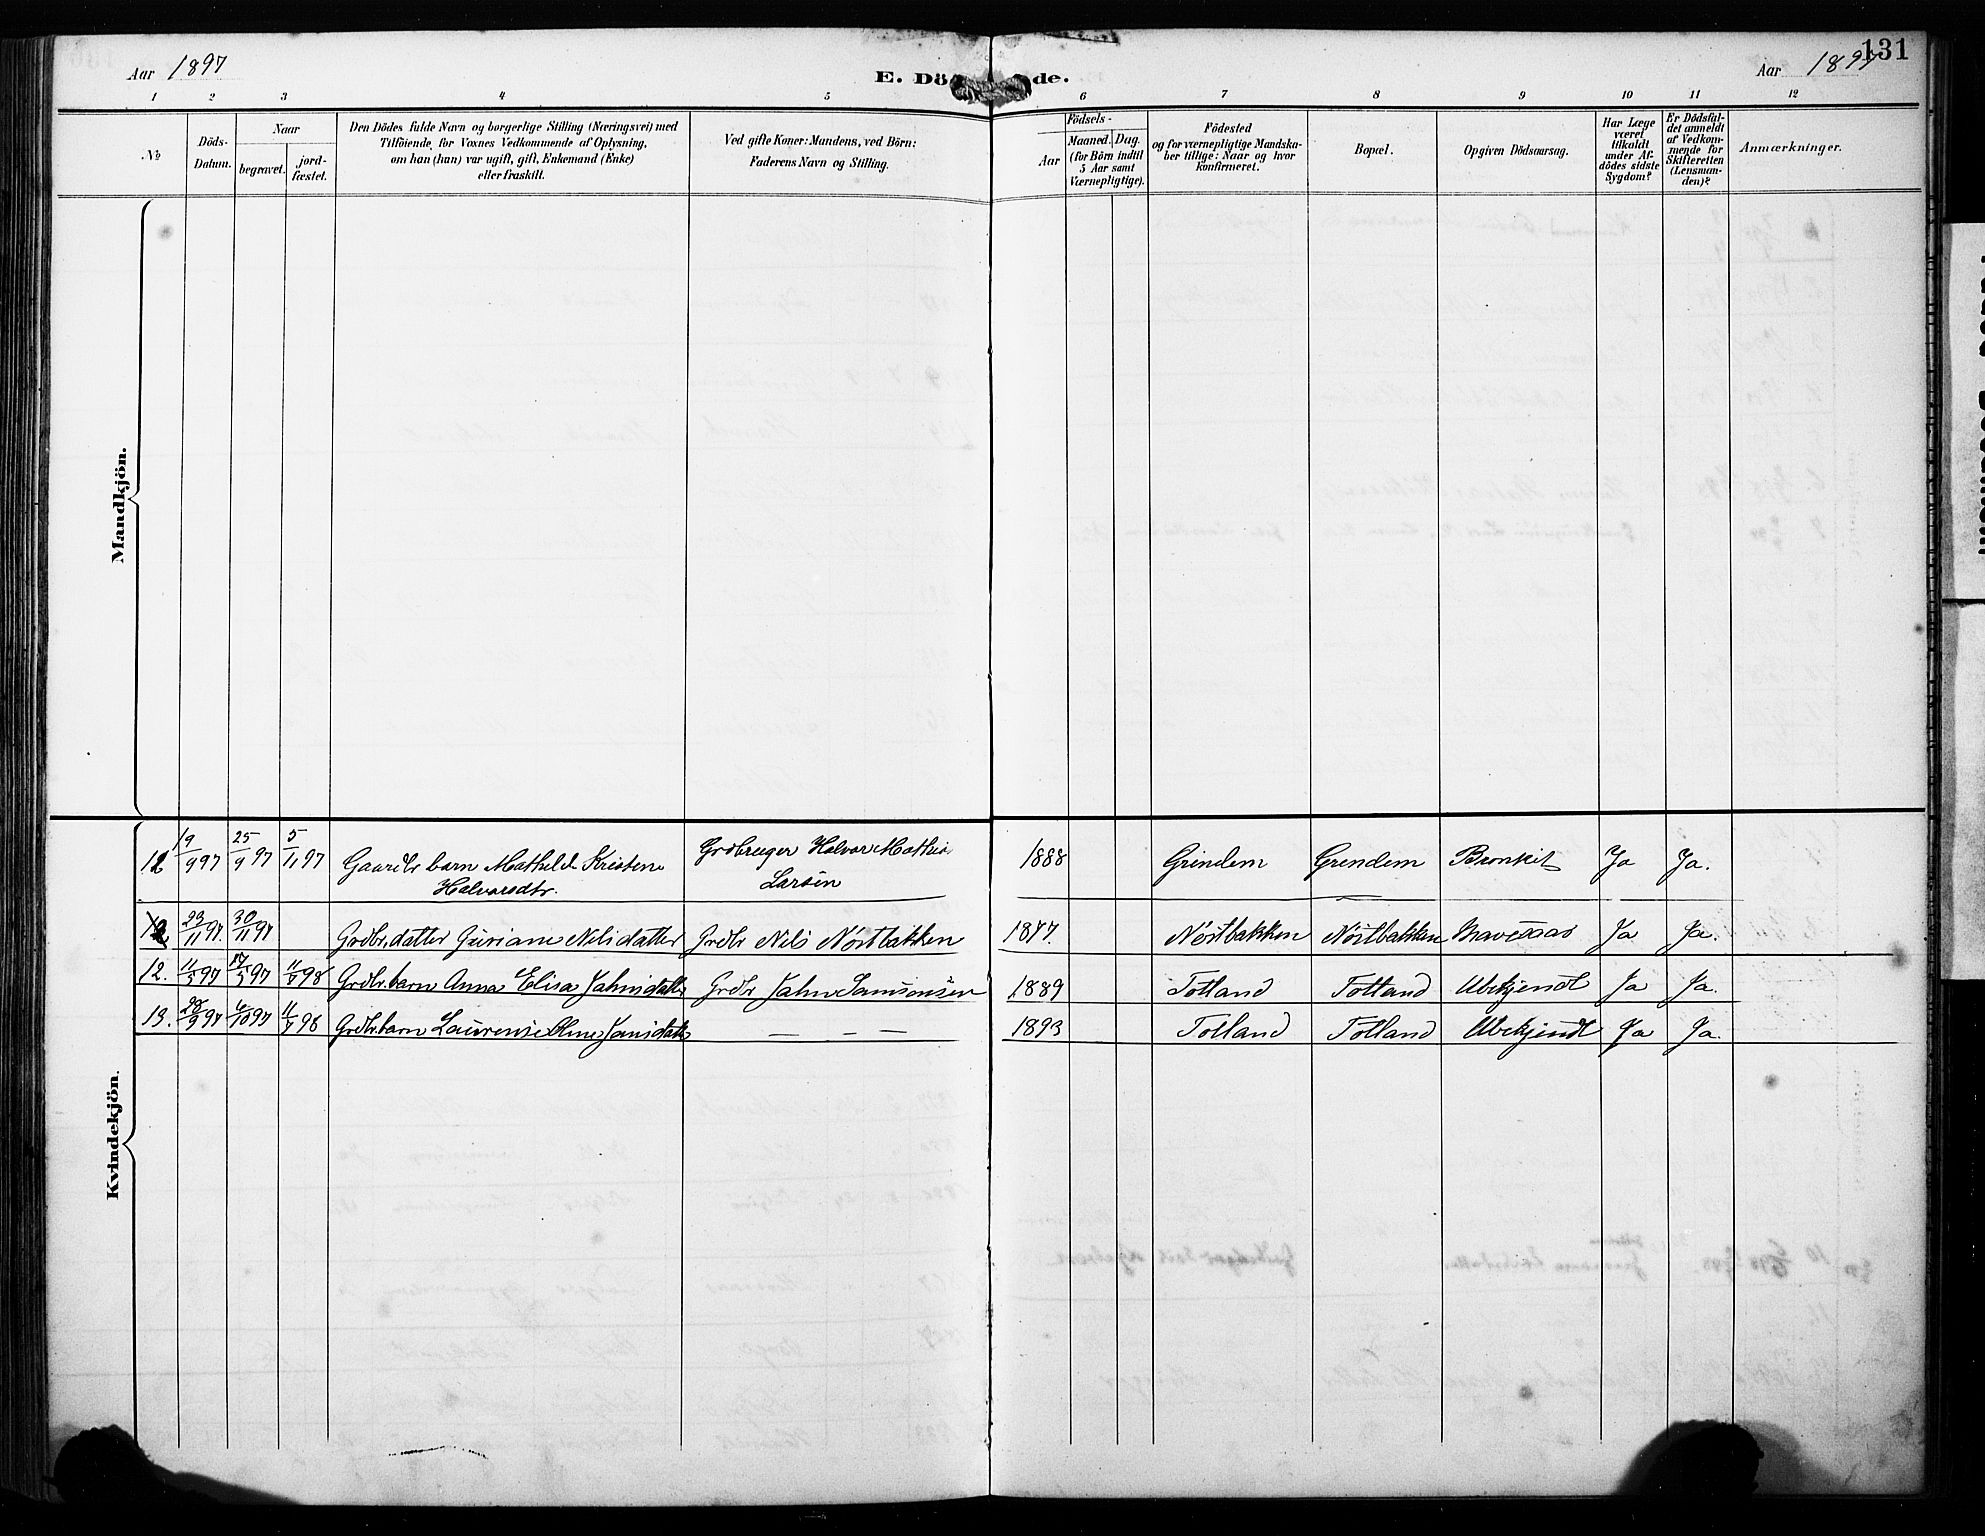 Aar 1897
E. Dö de.
Aar 1897
131
1 2 3 4 5 6 7 8 9 10 11 12
No
Döds-Datum.
Naar
begravet.
jord-fæstet.
Den Dödes fulde Navn og borgerlige Stilling (Næringsvei) med
Tilföiende, for Voxnes Vedkommende af Oplysning,
om han (han) var ugift, gift, Enkemand (Enke)
eller fraskilt.
Ved gifte Koner: Mandens, ved Börn:
Faderens Navn og Stilling.
Födsels-
Aar
Maaned. Dag.
(for Börn indtil
5 Aar samt
Værnepligtige).
Födested
og for værnepligtige Mandska-
ber tillige: Naar og hvor
konfirmeret.
Bopæl.
Opgiven Dödsaarsag.
Har Læge
været
tilkaldt
under Af-
dödes sidste
Sygdom?
Er Dödsfal-
det anmeldt
af Vedkom-
mende for
Skifteretten
(Lensman-
den)?
Anmærkninger.
Mandkjön.
Kvindekjön.
12 19/9 97 25/9 97 5/11 97 Gaardbr barn Mathild Kristene Grdbruger Halvor Mathia 1888 Grindem Grendem Bronkit Ja Ja.
Halvorsdtr. Larsen
23/11 97. 30/11 97 Grdbr, datter Guriane Nilsdatter Grdbr Nils Nöistbakken 1877. Nöistbakken Nöistbakken Ja Ja.
12. 11/5 97 17/5 97 11/7 98 Grdbr. barn Anna Elisa Jahnsdatter Grdbr Jahn Samsonsen 1889 Totland Totland Ubekjendt Ja Ja.
13. 28/9 97 4/10 97 11/7 98 Grdbr. barn Laurensie Oline Jansdatter — - — 1893 Totland Totland Ubekjendt Ja Ja.